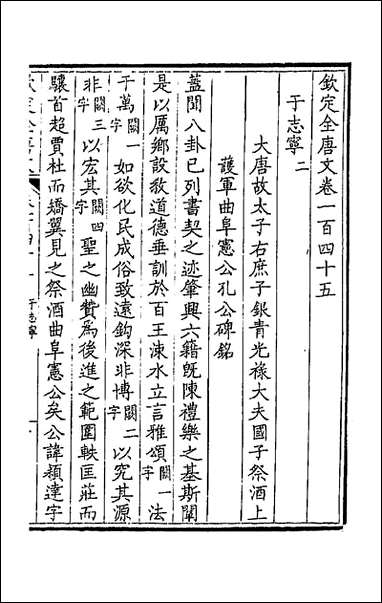 欽定全唐文卷一百四十五
于志寧二
大唐故太子右庶子銀青光祿大夫國子祭酒上
護軍曲阜憲公孔公碑銘
蓋聞八卦已列書契之迹肇興六籍既陳禮樂之基斯闡
是以厲鄉設教道德垂訓於百王涑水立言雅頌闕一字法
于萬闕一字如欲化民成俗致遠鈎深非博闕二字以究其源
非闕三字以宏其闕四字聖之幽贊為後進之範圍軼匡莊而
驤首超賈杜而矯翼見之祭酒曲阜憲公矣公諱穎達字
于志寧